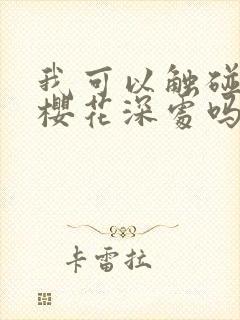 我可以触碰
樱花深处吗
卡雷拉